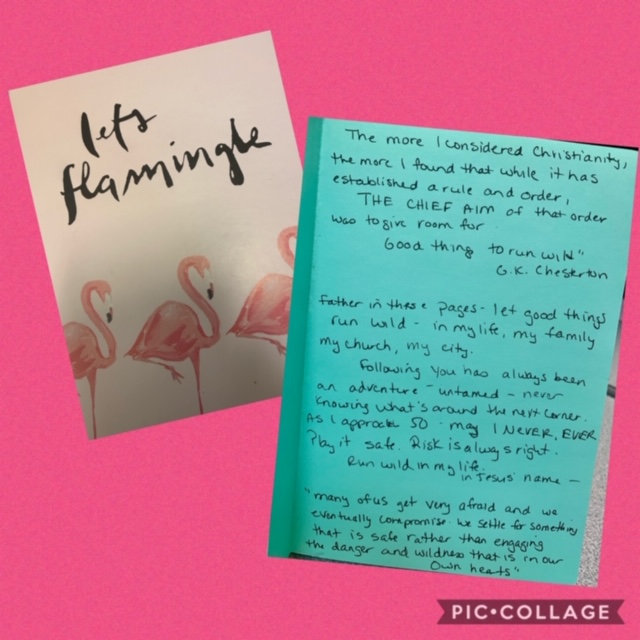 let's
flamingle
The more I considered Christianity,
the more I found that while it has
established a rule and order,
THE CHIEF AIM of that order
was to give room for
Good thing to run wild"
G.K. Chesterton
Father in these pages - let good things
run wild - in my life, my family
my church, my city.
Following You has always been
an adventure - untamed - never
knowing what's around the next corner.
As I approach 50 - may I NEVER, EVER
Play it safe. Risk is always right.
Run wild in my life.
in Jesus' name -
"many of us get very afraid and we
eventually compromise. We settle for something
that is safe rather than engaging
the danger and wildness that is in our
own hearts"
PIC•COLLAGE